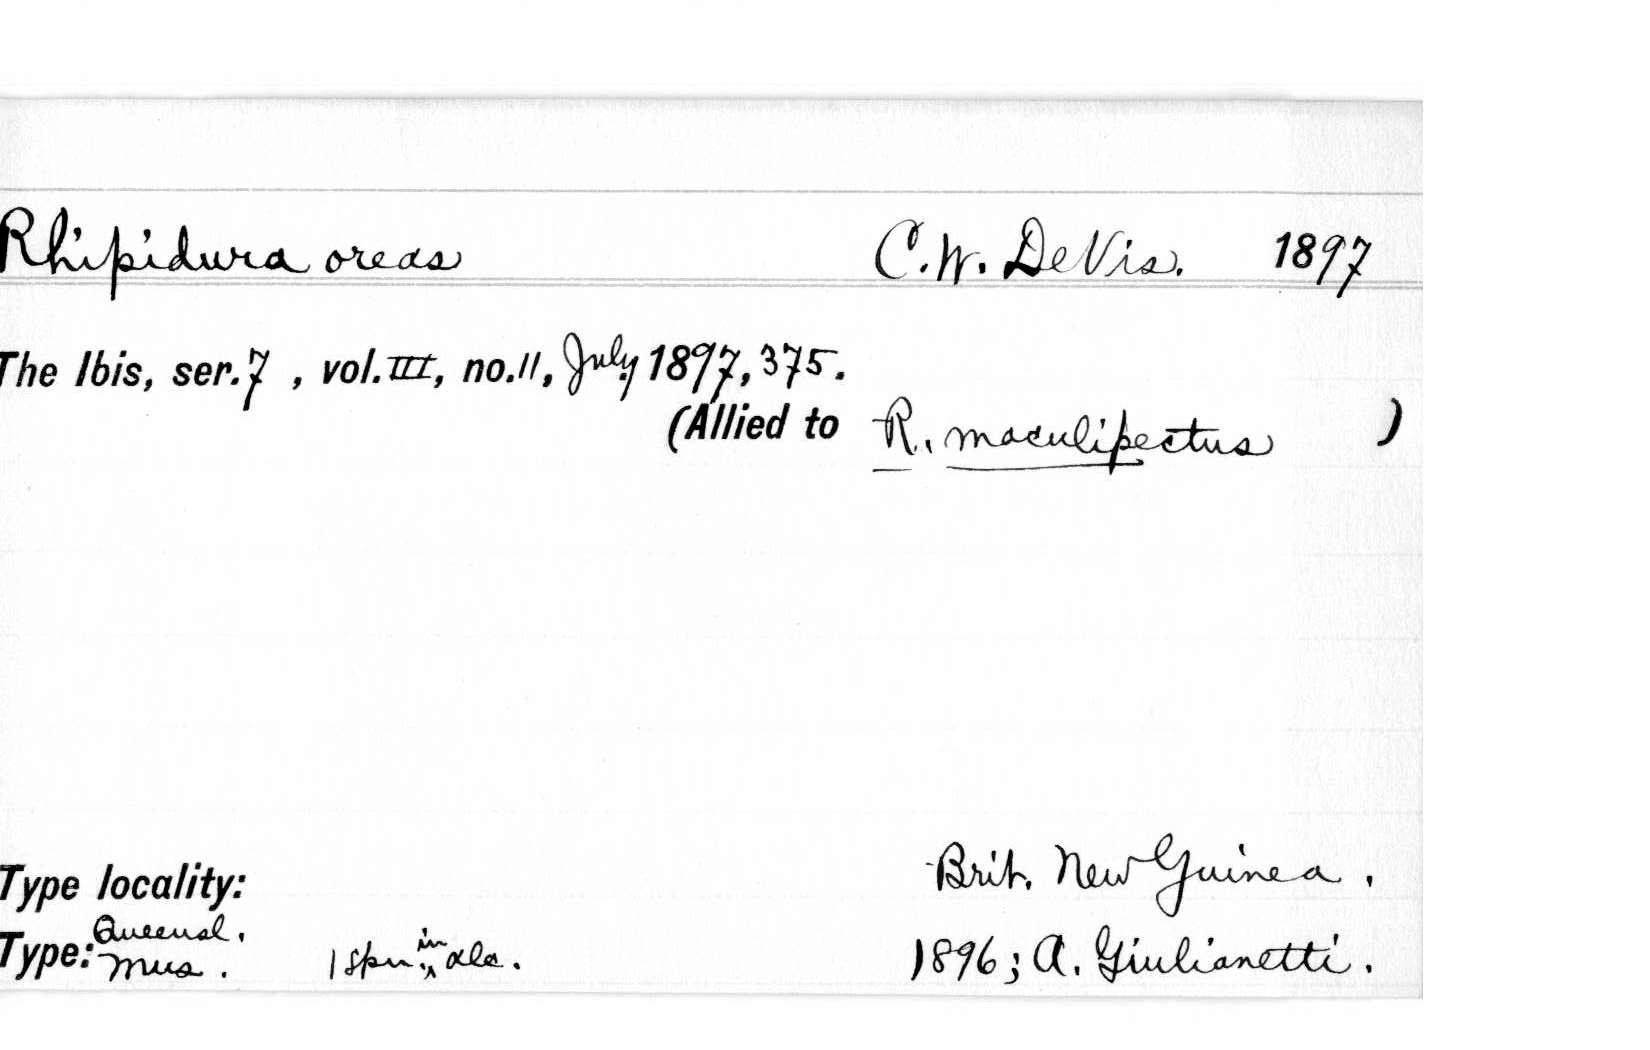 Rhipidura oreas C.W. DeVis. 1897
The Ibis, ser. 7 , vol. III, no. 11, July 1897, 375.
(Allied to R. maculipectus )
Type locality: Brit. New Guinea .
Type: Queensl. Mus . 1 spm. in alc . 1896; A. Giulianetti .